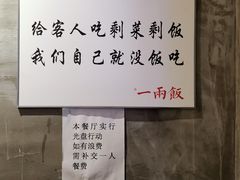 给客人吃剩菜剩饭
我们自己就没饭吃
一雨飯
本餐厅实行
光盘行动
如有浪费
需补交一人
餐费